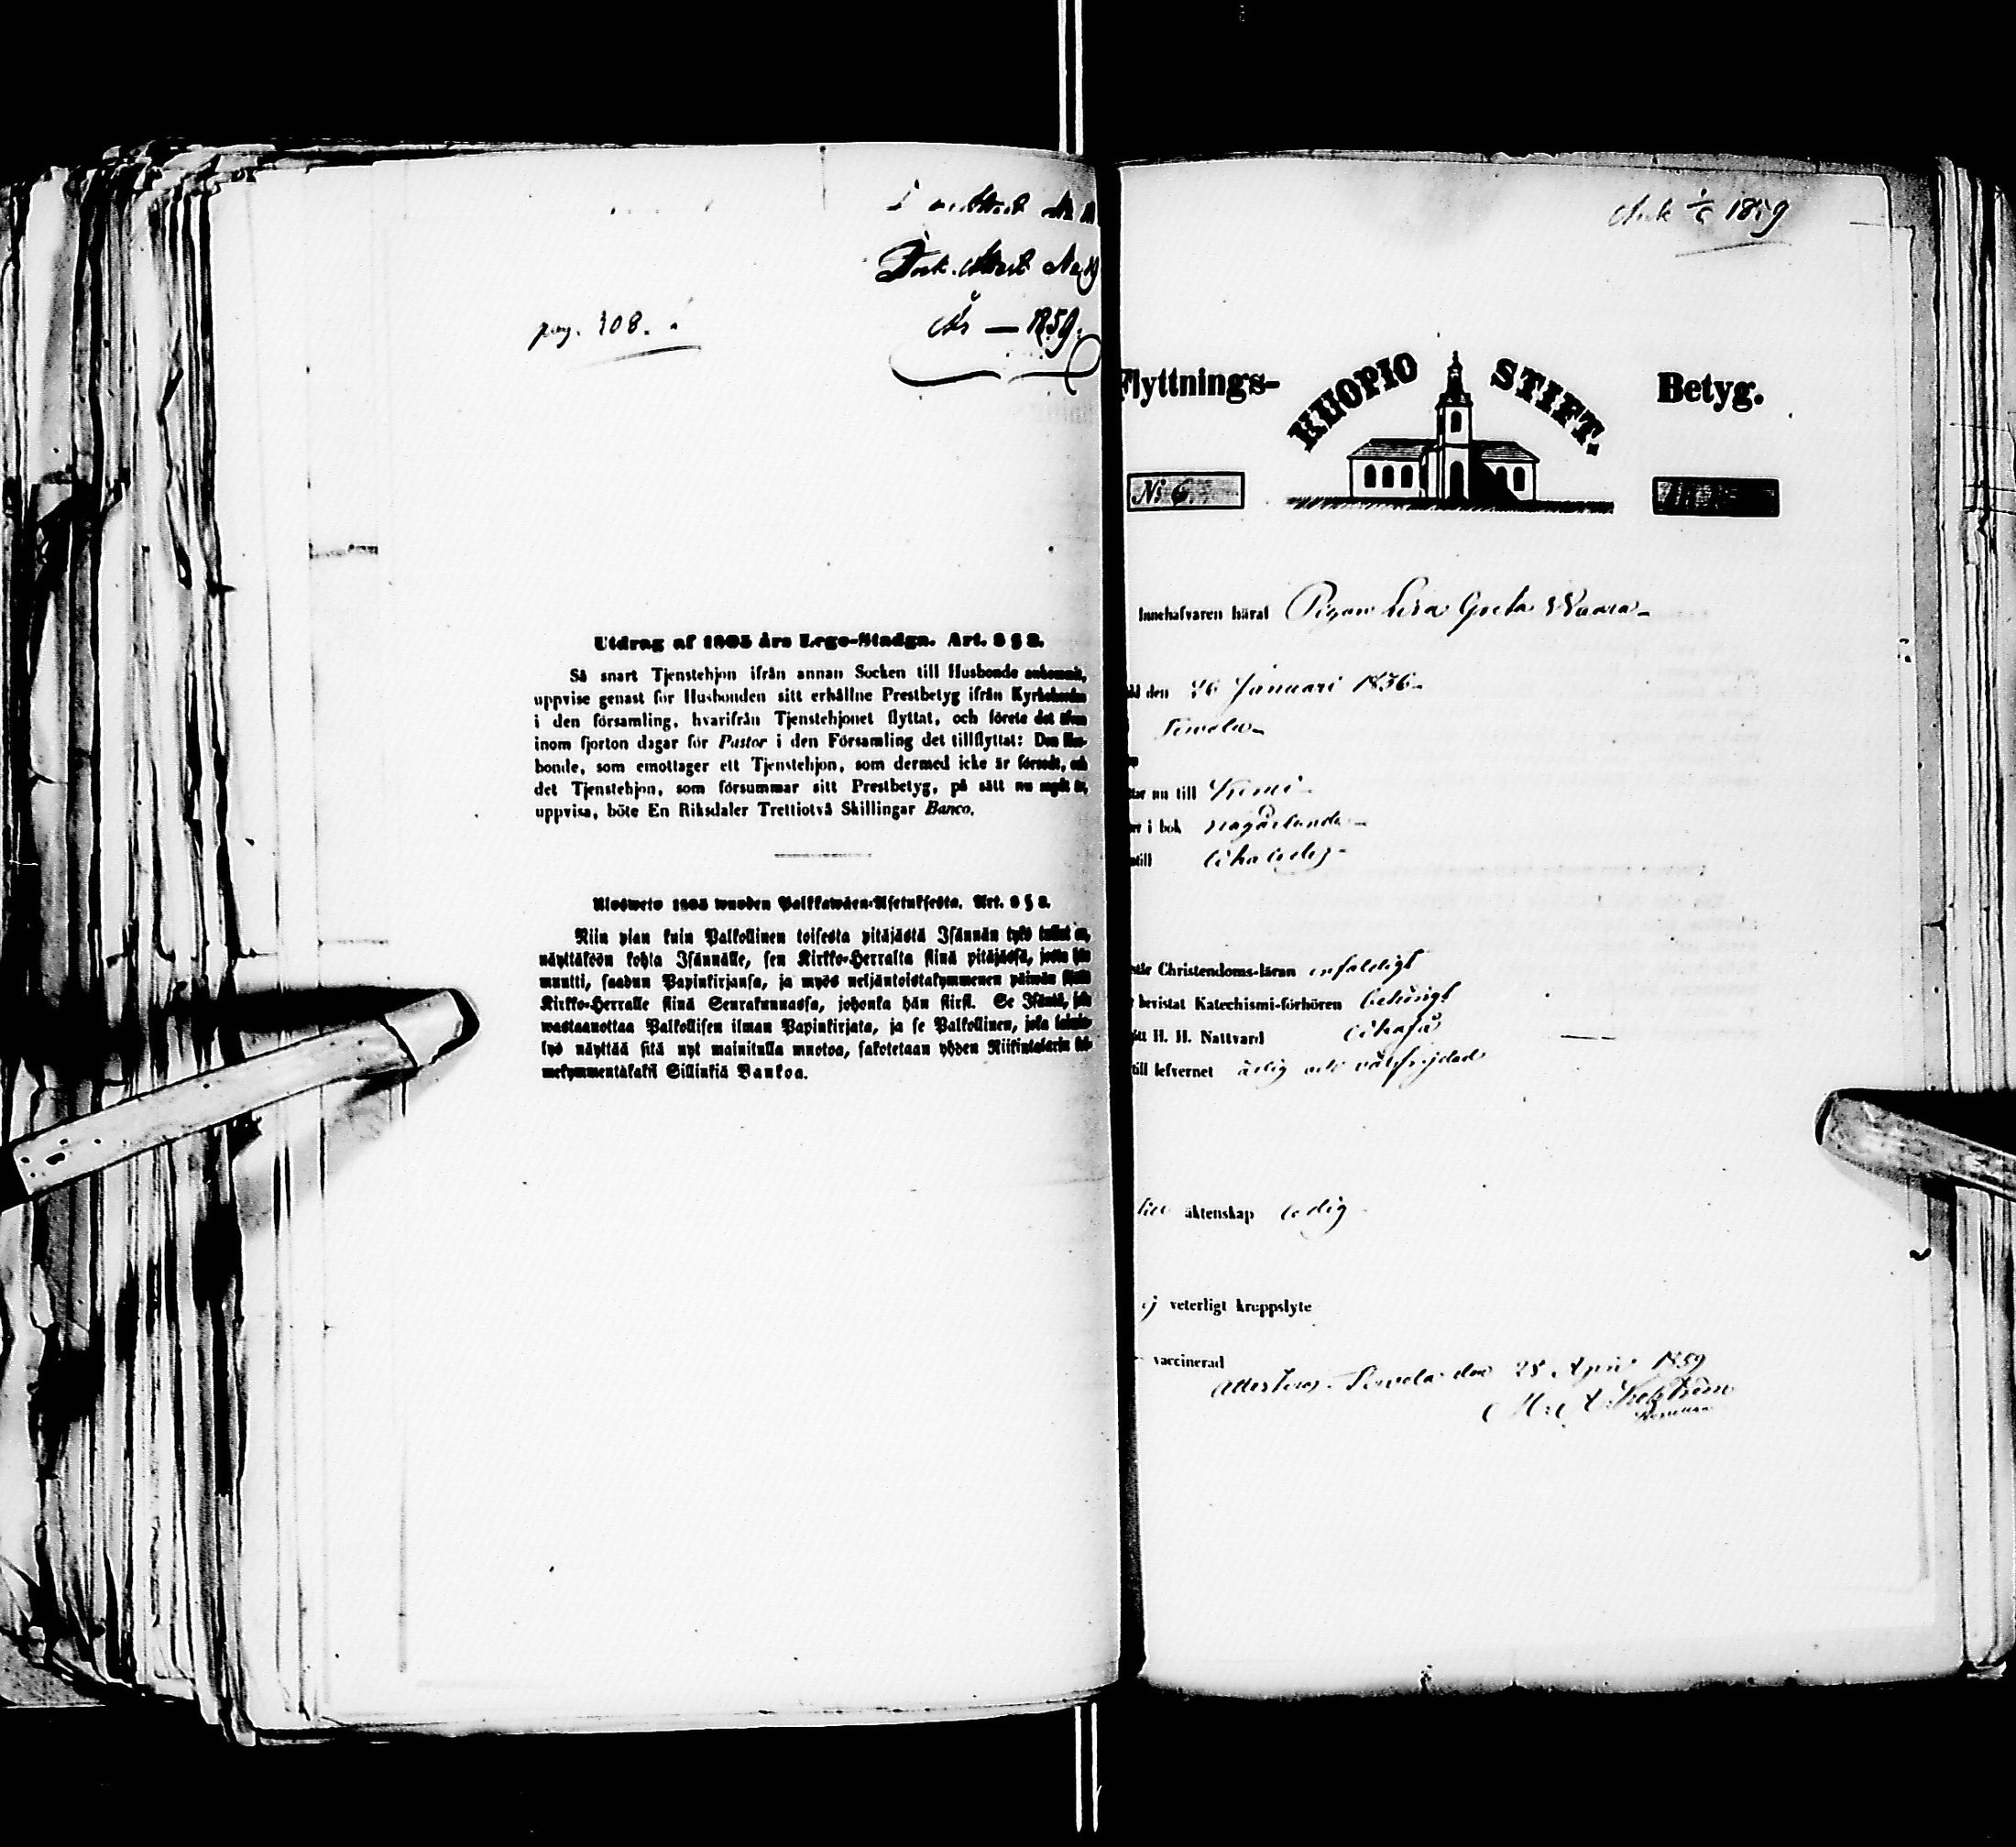 pag. 108.
År — 1859.
Utdrag af 1805 års Lego-Stadga. Art. 8 § 2.
Så snart Tjenstehjon ifrån annan Socken till Husbonde ankommit,
uppvise genast för Husbonden sitt erhållne Prestbetyg ifrån Kyrkoherden
i den församling, hvarifrån Tjenstehjonet flyttat, och förete det äfven
inom fjorton dagar för Pastor i den Församling det tillflyttat: Den Hus-
bonde, som emottager ett Tjenstehjon, som dermed icke är försedt, och
det Tjenstehjon, som försummar sitt Prestbetyg, på sätt nu sagdt är,
uppvisa, böte En Riksdaler Trettiotvå Skillingar Banco.
Ulosweto 1805 wuoden Palkkawäen-Asetuksesta. Art. 8 § 2.
Niin pian kuin Palkollinen toisesta pitäjästä Isännän tykö tullut on,
näyttäköön kohta Isännälle, sen Kirkko-Herralta siinä pitäjässä, josta hän
muutti, saadun Papinkirjansa, ja myös neljäntoistakymmenen päiwän
Kirkko-Herralle siinä Seurakunnassa, johonka hän siirsi. Se Isäntä, joka
wastaanottaa Palkollisen ilman Papinkirjata, ja se Palkollinen, joka laimin-
lyö näyttää sitä nyt mainitulla muotoa, sakotetaan yhden Riikintalarin kol-
mekymmentäkaksi Sillinkiä Bankoa.
1859
Flyttnings- KUOPIO STIFT. Betyg.
No 6
Innehafvaren häraf Pigan Lisa Greta Waara
den 26 Januari 1836
Simola
nu till Kemi
i bok någorlunda
till
Christendoms-läran enfaldigt
bevistat Katechismi-förhören
H. H. Nattvard
till lefvernet ärlig och välfrejdad
till äktenskap ledig
ej veterligt kroppslyte
vaccinerad
Attesteras. Simola den 28 April 1859